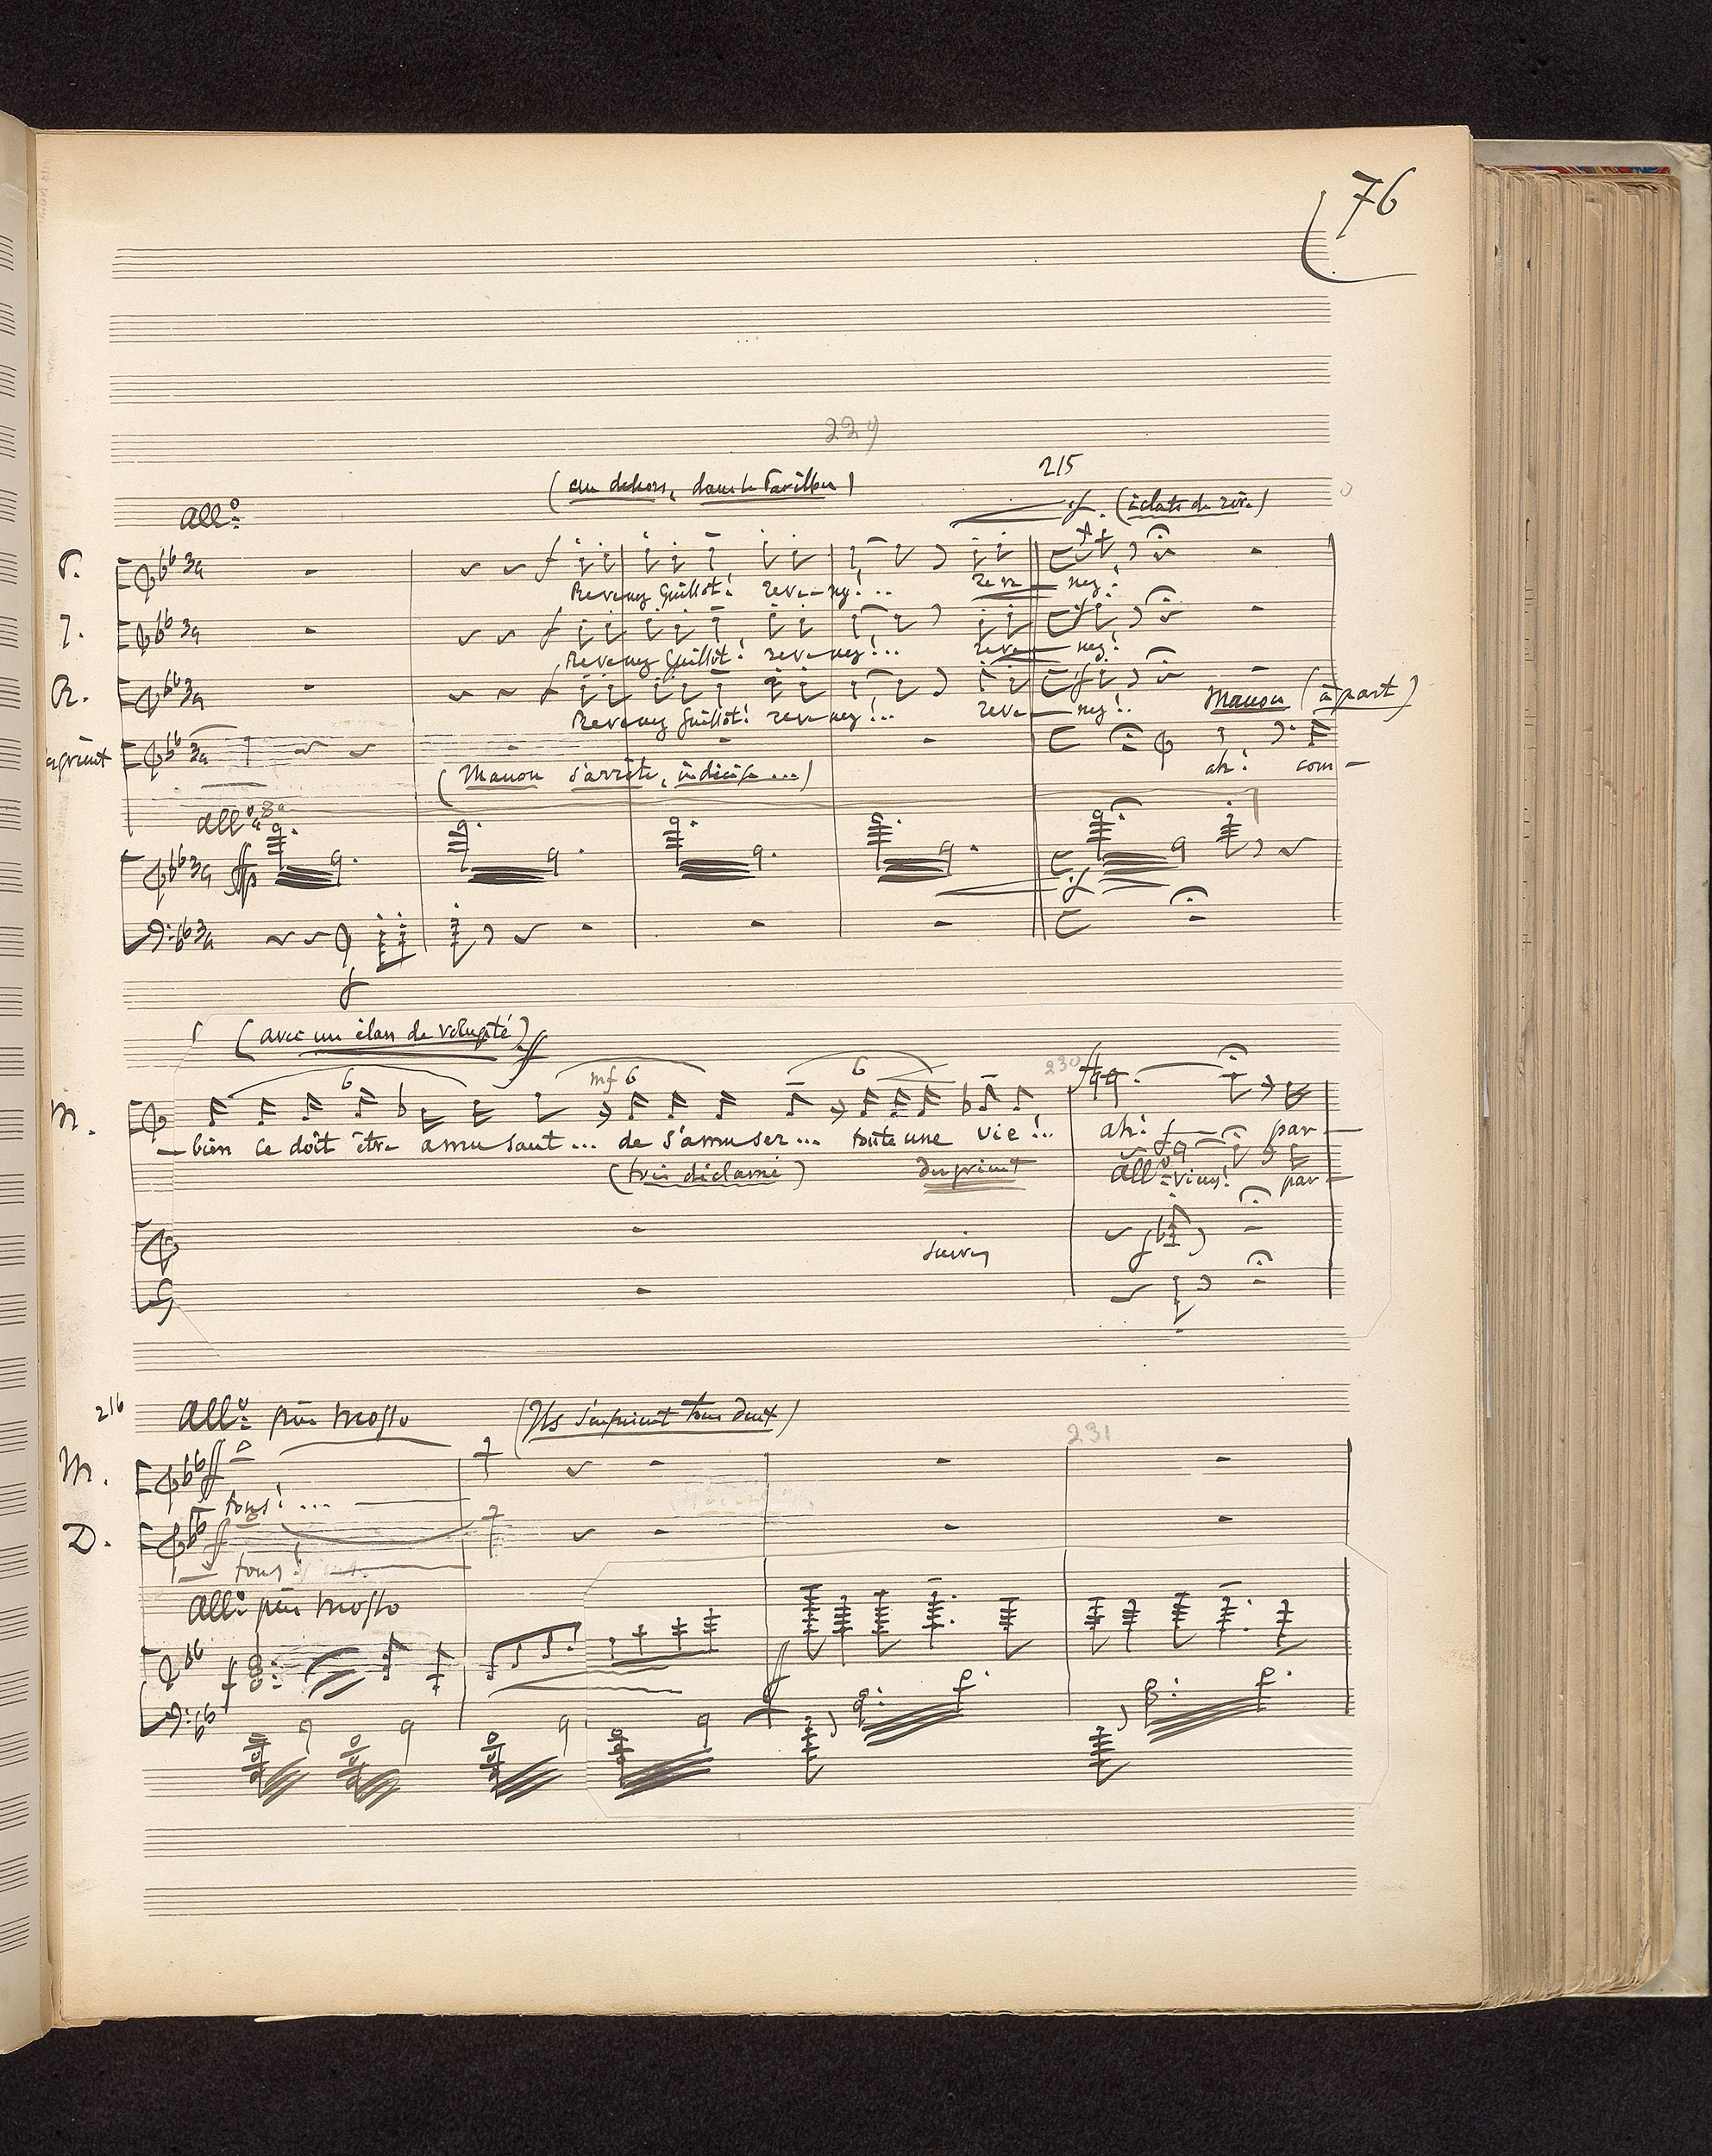 76
229
215
(au dehors, dans le Pavillon)
All°
f. (éclats de rire)
P.
Revenez Guillot! reve-nez!.. reve-nez!
J.
Revenez Guillot! revenez!... reve-nez!
R.
Revenez Guillot! revenez!.. reve-nez!..
Manon (à part)
ah! com-
(Manon s'arrête, indécise...)
All° 8a
ffp
f
(avec un élan de volupté)
ff
6 mf 6 6 230
M.
-bien ce doit être amusant... de s'amuser... toute une vie!.. ah! par-
(très déclamé) desgrieux
All° viens! par-
suivez
216 All° più mosso (Ils s'enfuient tous deux)
231
M. ff
-tons!...
D. ff
tons!
All° più mosso
f
ff